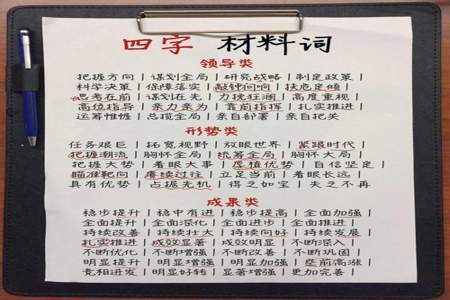 四字 材料词
领导类
把握方向 | 谋划全局 | 研究战略 | 制定政策 |
科学决策 | 保障落实 | 敲钟问响 | 扶危定倾 |
思考在前 | 谋划在先 | 力挽狂澜 | 高度重视 |
高位指导 | 亲力亲为 | 靠前指挥 | 扎实推进 |
运筹帷幄 | 总揽全局 | 亲自部署 | 亲自把关
形势类
任务艰巨 | 拓宽视野 | 放眼世界 | 紧跟时代 |
把握潮流 | 胸怀全局 | 统筹全局 | 胸怀大局 |
把握大势 | 着眼大事 | 厚植优势 | 自信坚定 |
瞄准靶向 | 赓续过往 | 立足当前 | 着眼长远 |
具有优势 | 占据先机 | 得之如宝 | 失之不再
成果类
稳步提升 | 稳中有进 | 稳步提高 | 全面加强 |
全面提升 | 全面深化 | 全面进步 | 全面推进 |
持续改善 | 持续壮大 | 持续向好 | 持续发展 |
扎实推进 | 成效显著 | 成效明显 | 不断深入 |
不断优化 | 不断提升 | 不断改善 | 不断巩固 |
明显提升 | 明显增强 | 明显加强 | 空前高涨 |
竞相迸发 | 明显好转 | 显著增强 | 更加完善 |